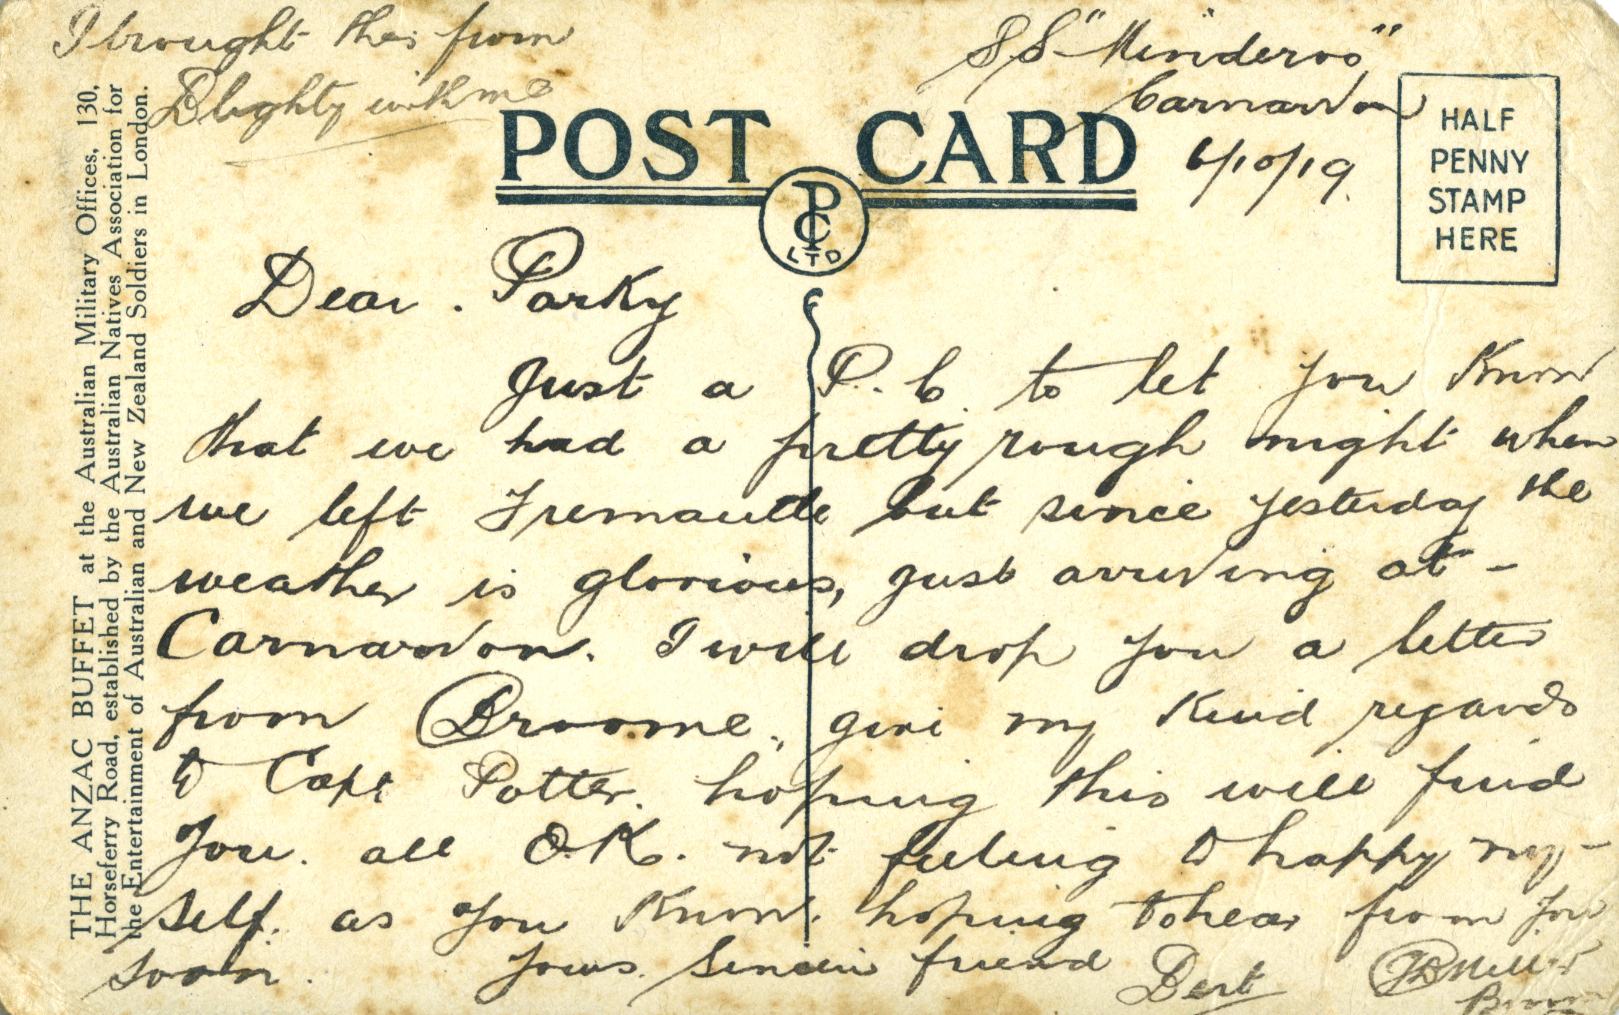 I brought this from
Blighty with me
SS "Minderoo"
Carnarvon
6/10/19.
POST CARD
PC
LTD
HALF
PENNY
STAMP
HERE
THE ANZAC BUFFET at the Australian Military Offices, 130,
Horseferry Road, established by the Australian Natives Association for
the Entertainment of Australian and New Zealand Soldiers in London.
Dear. Parky
Just a P.C. to let you know
that we had a pretty rough night when
we left Fremantle but since yesterday the
weather is glorious, just arriving at -
Carnarvon. I will drop you a letter
from Broome, give my kind regards
to Capt Potter. hoping this will find
you. all O.K. not feeling to happy my-
self. as you know. hoping to hear from you
soon. Yours. Sincere friend Bert
Miller